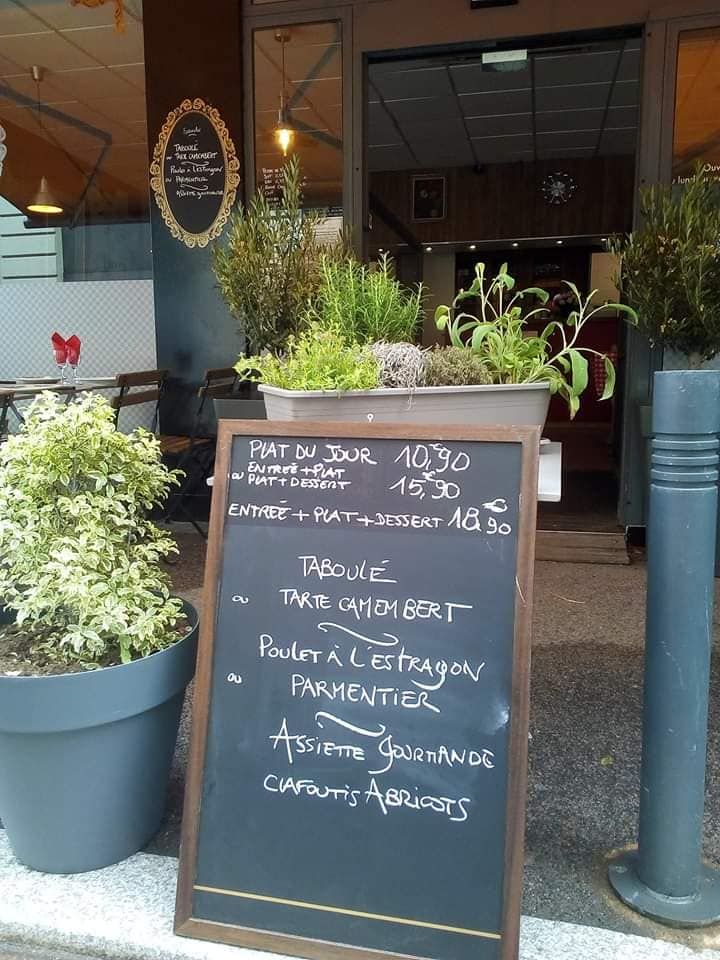 TABOULÉ
ou TARTE CAMEMBERT
Poulet à l'estragon
ou PARMENTIER
ASSIETTE gourmande
PLAT DU JOUR 10,€90
ENTREÉ + PLAT
ou PLAT + DESSERT 15,€90
ENTREÉ + PLAT + DESSERT 18,€90
TABOULÉ
ou TARTE CAMEMBERT
POULET À L'ESTRAGON
ou PARMENTIER
ASSIETTE GOURMANDE
CLAFOUTIS ABRICOTS